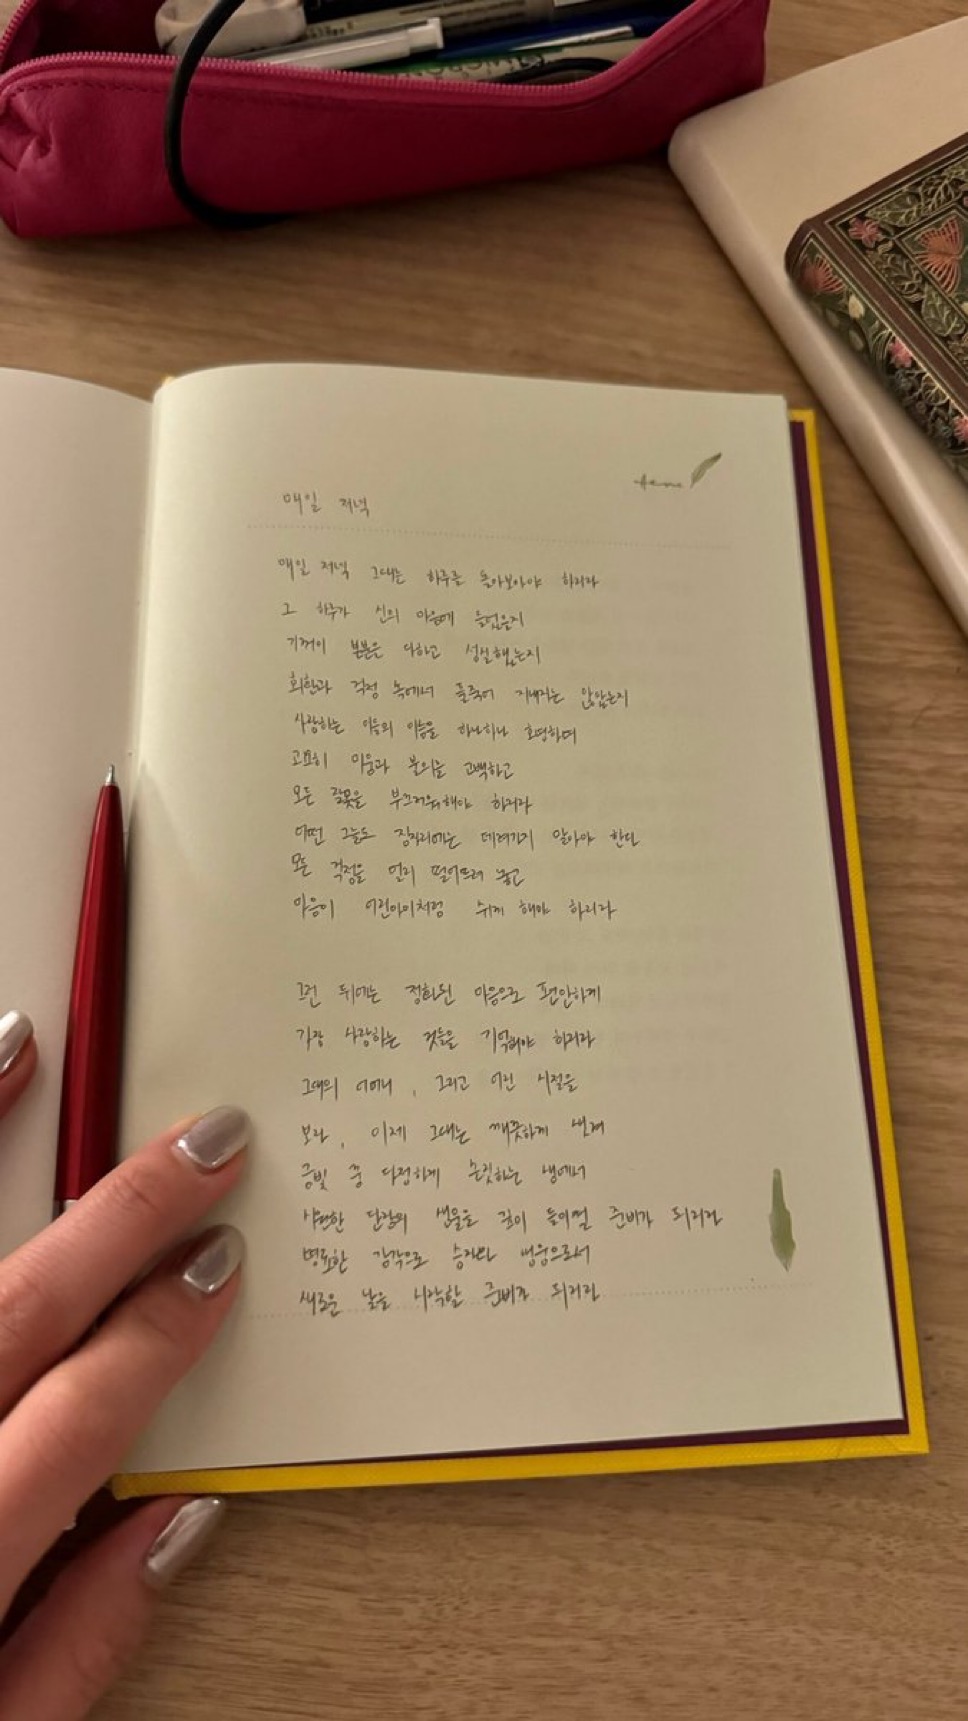 매일 저녁
매일 저녁 그대는 하루를 돌아보아야 하리라
그 하루가 신의 마음에 들었을지
기꺼이 본분을 다하고 성실했는지
회한과 걱정 속에서 풀죽어 지내지는 않았는지
사랑하는 이들의 이름을 하나하나 호명하며
고요히 미움과 불의를 고백하고
모든 잘못을 부끄러워해야 하리라
어떤 그늘도 잠자리에는 데려가지 말아야 한다
모든 걱정을 멀리 떨어뜨려 놓고
마음이 어린아이처럼 쉬게 해야 하리라
그런 뒤에는 정화된 마음으로 편안하게
가장 사랑하는 것들을 기억해야 하리라
그대의 어머니, 그리고 어린 시절을
보라, 이제 그대는 깨끗하게 변해
금빛 꿈 다정하게 손짓하는 샘에서
서련한 단잠의 샘물을 깊이 들이켤 준비가 되리라
명료한 감각으로 승자와 영웅으로서
새로운 날을 시작할 준비가 되리라